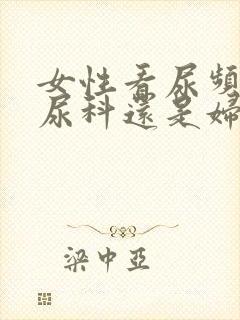 女性看尿頻
尿科還是婦
梁中亞